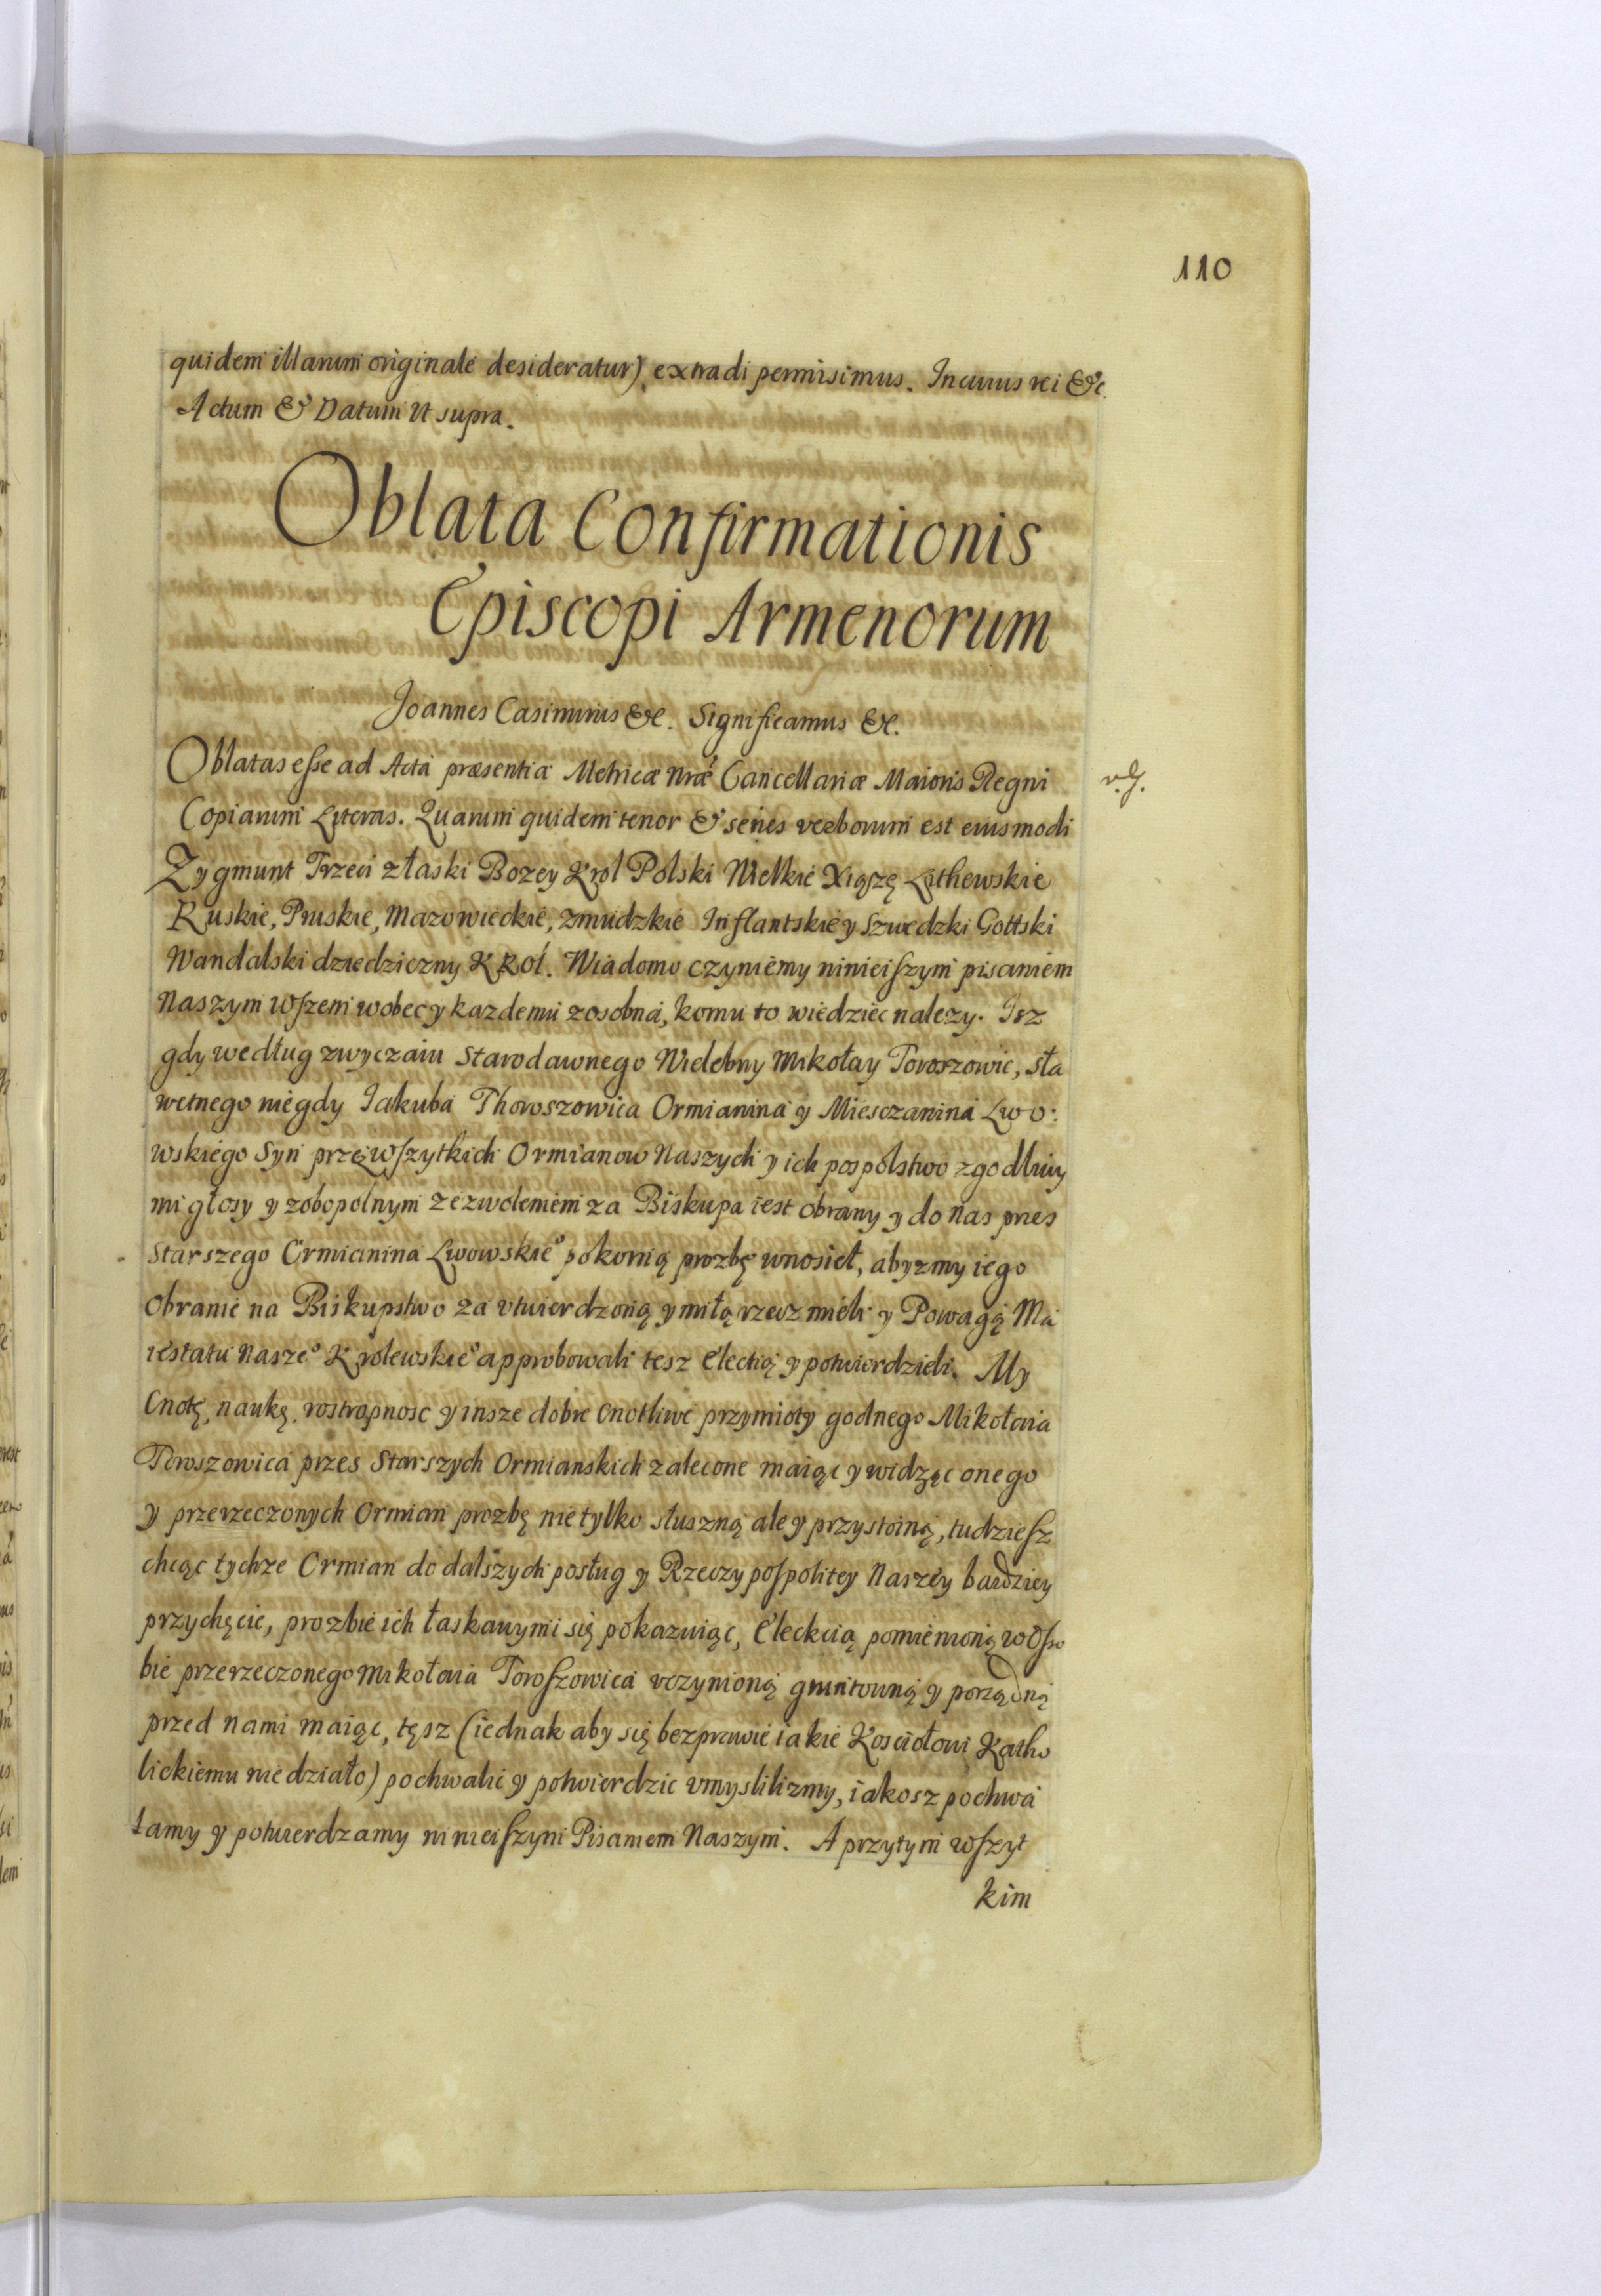 110
quidem illarum originale desideratur) extradi permisimus. In cuius rei &c.
Actum & Datum ut supra.
Oblata Confirmationis
Episcopi Armenorum
Joannes Casimirus &c. Significamus &c.
Oblatas esse ad Acta præsentia Metricæ nræ Cancellariæ Maioris Regni
Copiarum Literas. Quarum quidem tenor & series verborum est eiusmodi
Zygmunt Trzeci z łaski Bozey Krol Polski Wielkie Xiąszę Lithewskie
Ruskie, Pruskie, Mazowieckie, Zmudzkie Inflantskie y Szwedzki Gottski
Wandalski dziedziczny KRol. Wiadomo czyniemy ninieiszym pisaniem
Naszym wszem wobec y kazdemu zosobna, komu to wiedziec nalezy. Isz
gdy według zwyczaiu Starodawnego Wielebny Mikołay Toroszowic, sła
wetnego niegdy Iakuba Thoroszowica Ormianina y Miesczanina Lwo:
wskiego Syn przez wszytkich Ormianow Naszych y ich pospolstwo zgodliwy
mi głosy y zobopolnym zezwoleniem za Biskupa iest obrany y do nas przes
Starszego Ormianina Lwowskie° pokorną prozbę wnosieł, abyzmy iego
Obranie na Biskupstwo za vtwierdzoną y miłą rzecz mieli y Powagą Ma
iestatu Nasze° Krolewskie° approbowali tesz Electią y potwierdzieli. My
Cnotę, naukę, rostropnosc y insze dobre Cnotliwe przymioty godnego Mikołaia
Toroszowica przes Starszych Ormianskich zalecone maiąc y widząc onego
y przerzeczonych Ormian prozbę nie tylko słuszną ale y przystoiną, tudziesz
chcąc tychze Ormian do dalszych posług y Rzeczypospolitey Naszey bardziey
przychęcic, prozbie ich łaskawymi się pokazuiąc, Eleckcią pomienioną w Oso
bie przerzeczonego Mikołaia Toroszowica vczynioną gruntowną y porządną
przed nami maiąc, tęsz (iednak aby się bezprawie iakie Kosciołowi Katho
lickiemu nie działo) pochwalic y potwierdzic vmyslilizmy, iakosz pochwa
lamy y potwierdzamy ninieiszym Pisaniem Naszym. A przytym wszyt
kim